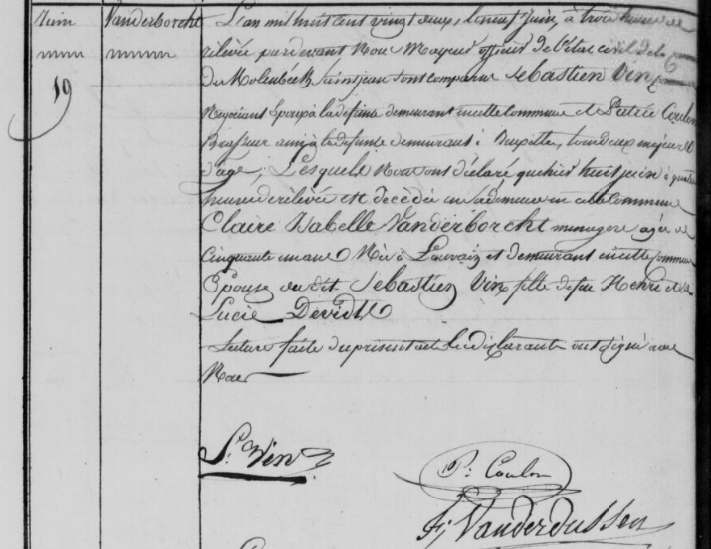 Num
19
Vanderborcht
L'an mil huit cent vingt deux, le neuf Juin, à trois heures de
relevée pardevant Nous Mayeur officier de l'état civil de la
de Molenbéek Saint jean sont comparus Sebastien Vin
Negociant Epoux à la defunte demeurant en cette Commune et Pierre Coulon
Brasseur ami à la defunte demeurant à Rupelle, tous deux majeurs
d'age, Lesquels Nous ont déclaré que hier huit juin à quatre
heures de relevée est decédée en sa demeure en cette Commune
Claire Isabelle Vanderborcht menagere agée de
Cinquante un ans Née à Louvain et demeurant en cette Commune
Epouse du dit Sebastien Vin fille de feu Henri et de
Lucie Devidts
Lecture faite du present acte les déclarants ont signé avec
Nous
S. Vin
P: Coulon
F; Vanderdussen